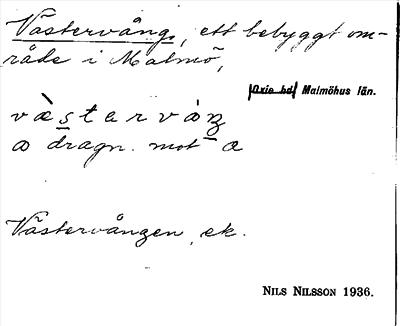 Västervång, ett bebyggt om-
råde i Malmö,
Oxie hd Malmöhus län.
væ̀sterváŋ
a dragn. mot a
Västervången, ek.
NILS NILSSON 1936.